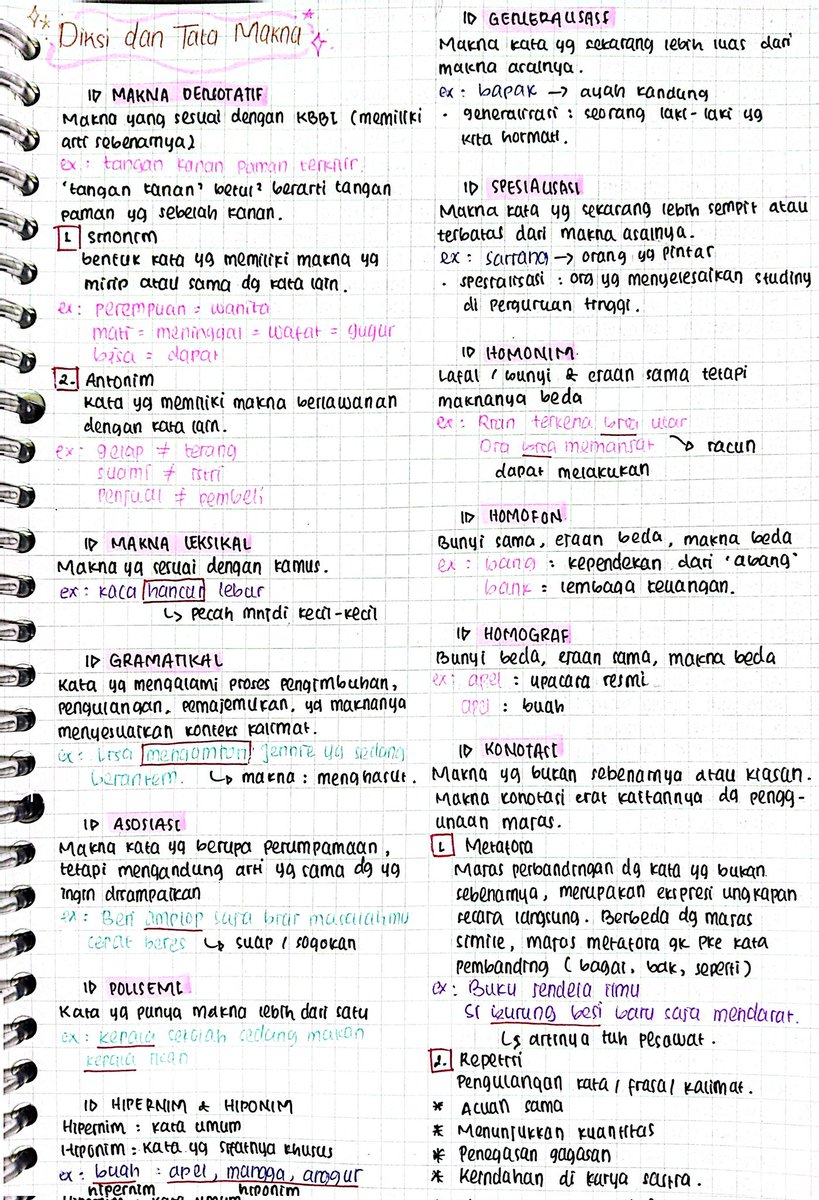 Diksi dan Tata Makna
ID MAKNA DENSOTATIF
Makna yang sesuai dengan KBBI (memiliki
arti sebenarnya)
ex : tangan kanan paman terkilir.
'tangan kanan' betul² berarti tangan
paman yg sebelah kanan.
1. Sinonim
bentuk kata yg memiliki makna yg
mirip atau sama dg kata lain.
ex : perempuan = wanita
mati = meninggal = wafat = gugur
bisa = dapat
2. Antonim
Kata yg memiliki makna berlawanan
dengan kata lain.
ex : gelap ≠ terang
suami ≠ istri
penjual ≠ pembeli
ID MAKNA LEKSIKAL
Makna yg sesuai dengan kamus.
ex : kaca hancur lebur
↳ pecah mnjdi kecil-kecil
ID GRAMATIKAL
Kata yg mengalami proses pengimbuhan,
pengulangan, pemajemukan, yg maknanya
menyesuaikan konteks kalimat.
ex : Lisa mengompori Jennie yg sedang
berantem. ↳ makna : menghasut.
ID ASOSIASI
Makna kata yg berupa perumpamaan,
tetapi mengandung arti yg sama dg yg
ingin disampaikan
ex : Beri amplop saja biar masalahmu
cepat beres ↳ suap / sogokan
ID POLISEMI
Kata yg punya makna lebih dari satu
ex : kepala sekolah sedang makan
kepala ikan
ID HIPERNIM & HIPONIM
Hipernim : kata umum
Hiponim : kata yg sifatnya khusus
ex : buah : apel, mangga, anggur
hipernim hiponim
ID GENERALISASI
Makna kata yg sekarang lebih luas dari
makna asalnya.
ex : bapak → ayah kandung
• generalisasi : seorang laki-laki yg
kita hormati.
ID SPESIALISASI
Makna kata yg sekarang lebih sempit atau
terbatas dari makna asalnya.
ex : sarjana → orang yg pintar
• spesialisasi : org yg menyelesaikan studiny
di perguruan tinggi.
ID HOMONIM
Lafal / bunyi & ejaan sama tetapi
maknanya beda
ex : Rian terkena bisa ular
Ora bisa memanjat ↘ racun
dapat melakukan
ID HOMOFON
Bunyi sama, ejaan beda, makna beda
ex : bang : kependekan dari 'abang'
bank : lembaga keuangan.
ID HOMOGRAF
Bunyi beda, ejaan sama, makna beda
ex : apel : upacara resmi
apel : buah
ID KONOTASI
Makna yg bukan sebenarnya atau kiasan.
Makna konotasi erat kaitannya dg pengg-
unaan majas.
1. Metafora
Majas perbandingan dg kata yg bukan
sebenarnya, merupakan ekspresi ungkapan
secara langsung. Berbeda dg majas
simile, majas metafora gk pke kata
pembanding (bagai, bak, seperti)
ex : Buku jendela ilmu
Si burung besi baru saja mendarat.
↳ artinya tuh pesawat.
2. Repetisi
Pengulangan kata / frasa / kalimat.
* Acuan sama
* Menunjukkan kuantitas
* Penegasan gagasan
* Keindahan di karya sastra.